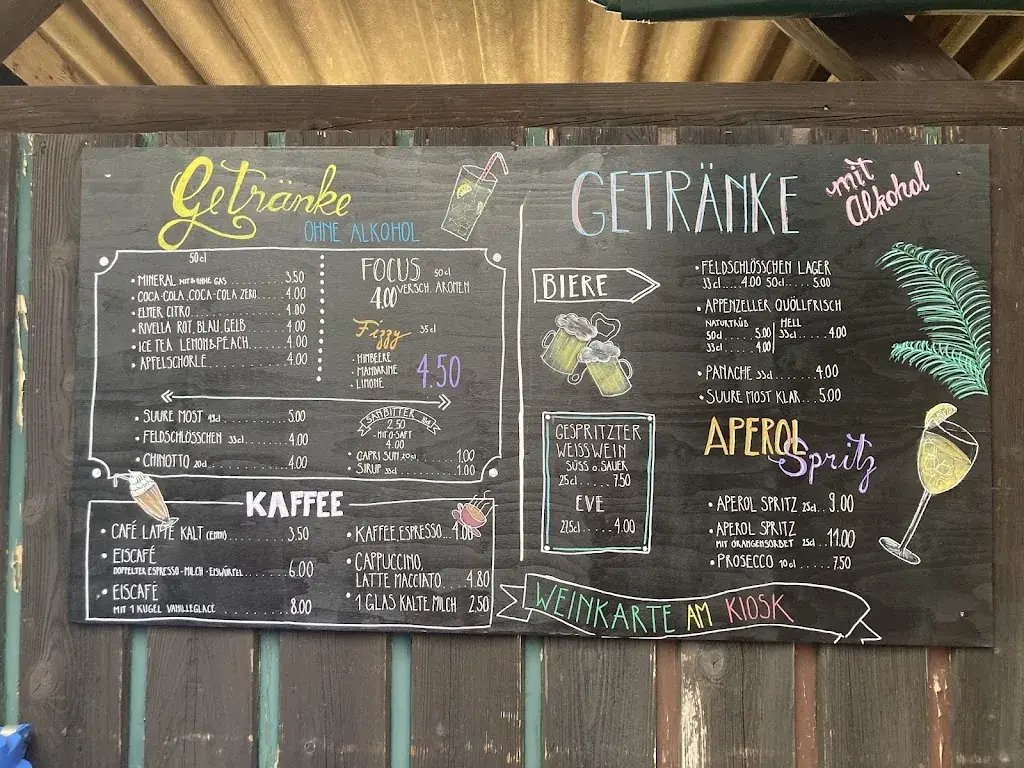 Getränke
OHNE ALKOHOL
50cl
• MINERAL MIT & OHNE GAS ........ 3.50
• COCA-COLA, COCA-COLA ZERO ....... 4.00
• ELMER CITRO ................ 4.00
• RIVELLA ROT, BLAU, GELB ....... 4.00
• ICE TEA LEMON & PEACH ...... 4.00
• APFELSCHORLE ............. 4.00
FOCUS 50cl
4.00 VERSCH. AROMEN
Fizzy 35cl
• HIMBEERE
• MANDARINE
• LIMONE
4.50
• SUURE MOST 49cl ......... 5.00
• FELDSCHLÖSSCHEN 33cl ....... 4.00
• CHINOTTO 20cl ........... 4.00
SANBITTER
2.50
- MIT O-SAFT
4.00
CAPRI SUN 20cl ...... 1.00
• SIRUP 33cl ........ 1.00
KAFFEE
• CAFÉ LATTE KALT (EMMI) ....... 3.50
• EISCAFÉ
DOPPELTER ESPRESSO - MILCH - EISWÜRFEL ...... 6.00
• EISCAFÉ
MIT 1 KUGEL VANILLEGLACÉ ........ 8.00
• KAFFEE, ESPRESSO .... 4.00
• CAPPUCCINO,
LATTE MACCIATO .... 4.80
• 1 GLAS KALTE MILCH 2.50
GETRÄNKE mit Alkohol
BIERE
• FELDSCHLÖSSCHEN LAGER
33cl ..... 4.00 50cl ...... 5.00
• APPENZELLER QUÖLLFRISCH
NATURTRÜB
50cl ...... 5.00
33cl ...... 4.00
HELL
33cl ....... 4.00
• PANACHE 33cl ....... 4.00
• SUURE MOST KLAR ... 5.00
GESPRITZTER
WEISSWEIN
SÜSS o. SAUER
25cl ...... 7.50
EVE
27.5cl ..... 4.00
APEROL
Spritz
• APEROL SPRITZ 25cl .. 9.00
• APEROL SPRITZ
MIT ORANGENSORBET 25cl .. 11.00
• PROSECCO 10cl ....... 7.50
WEINKARTE AM KIOSK